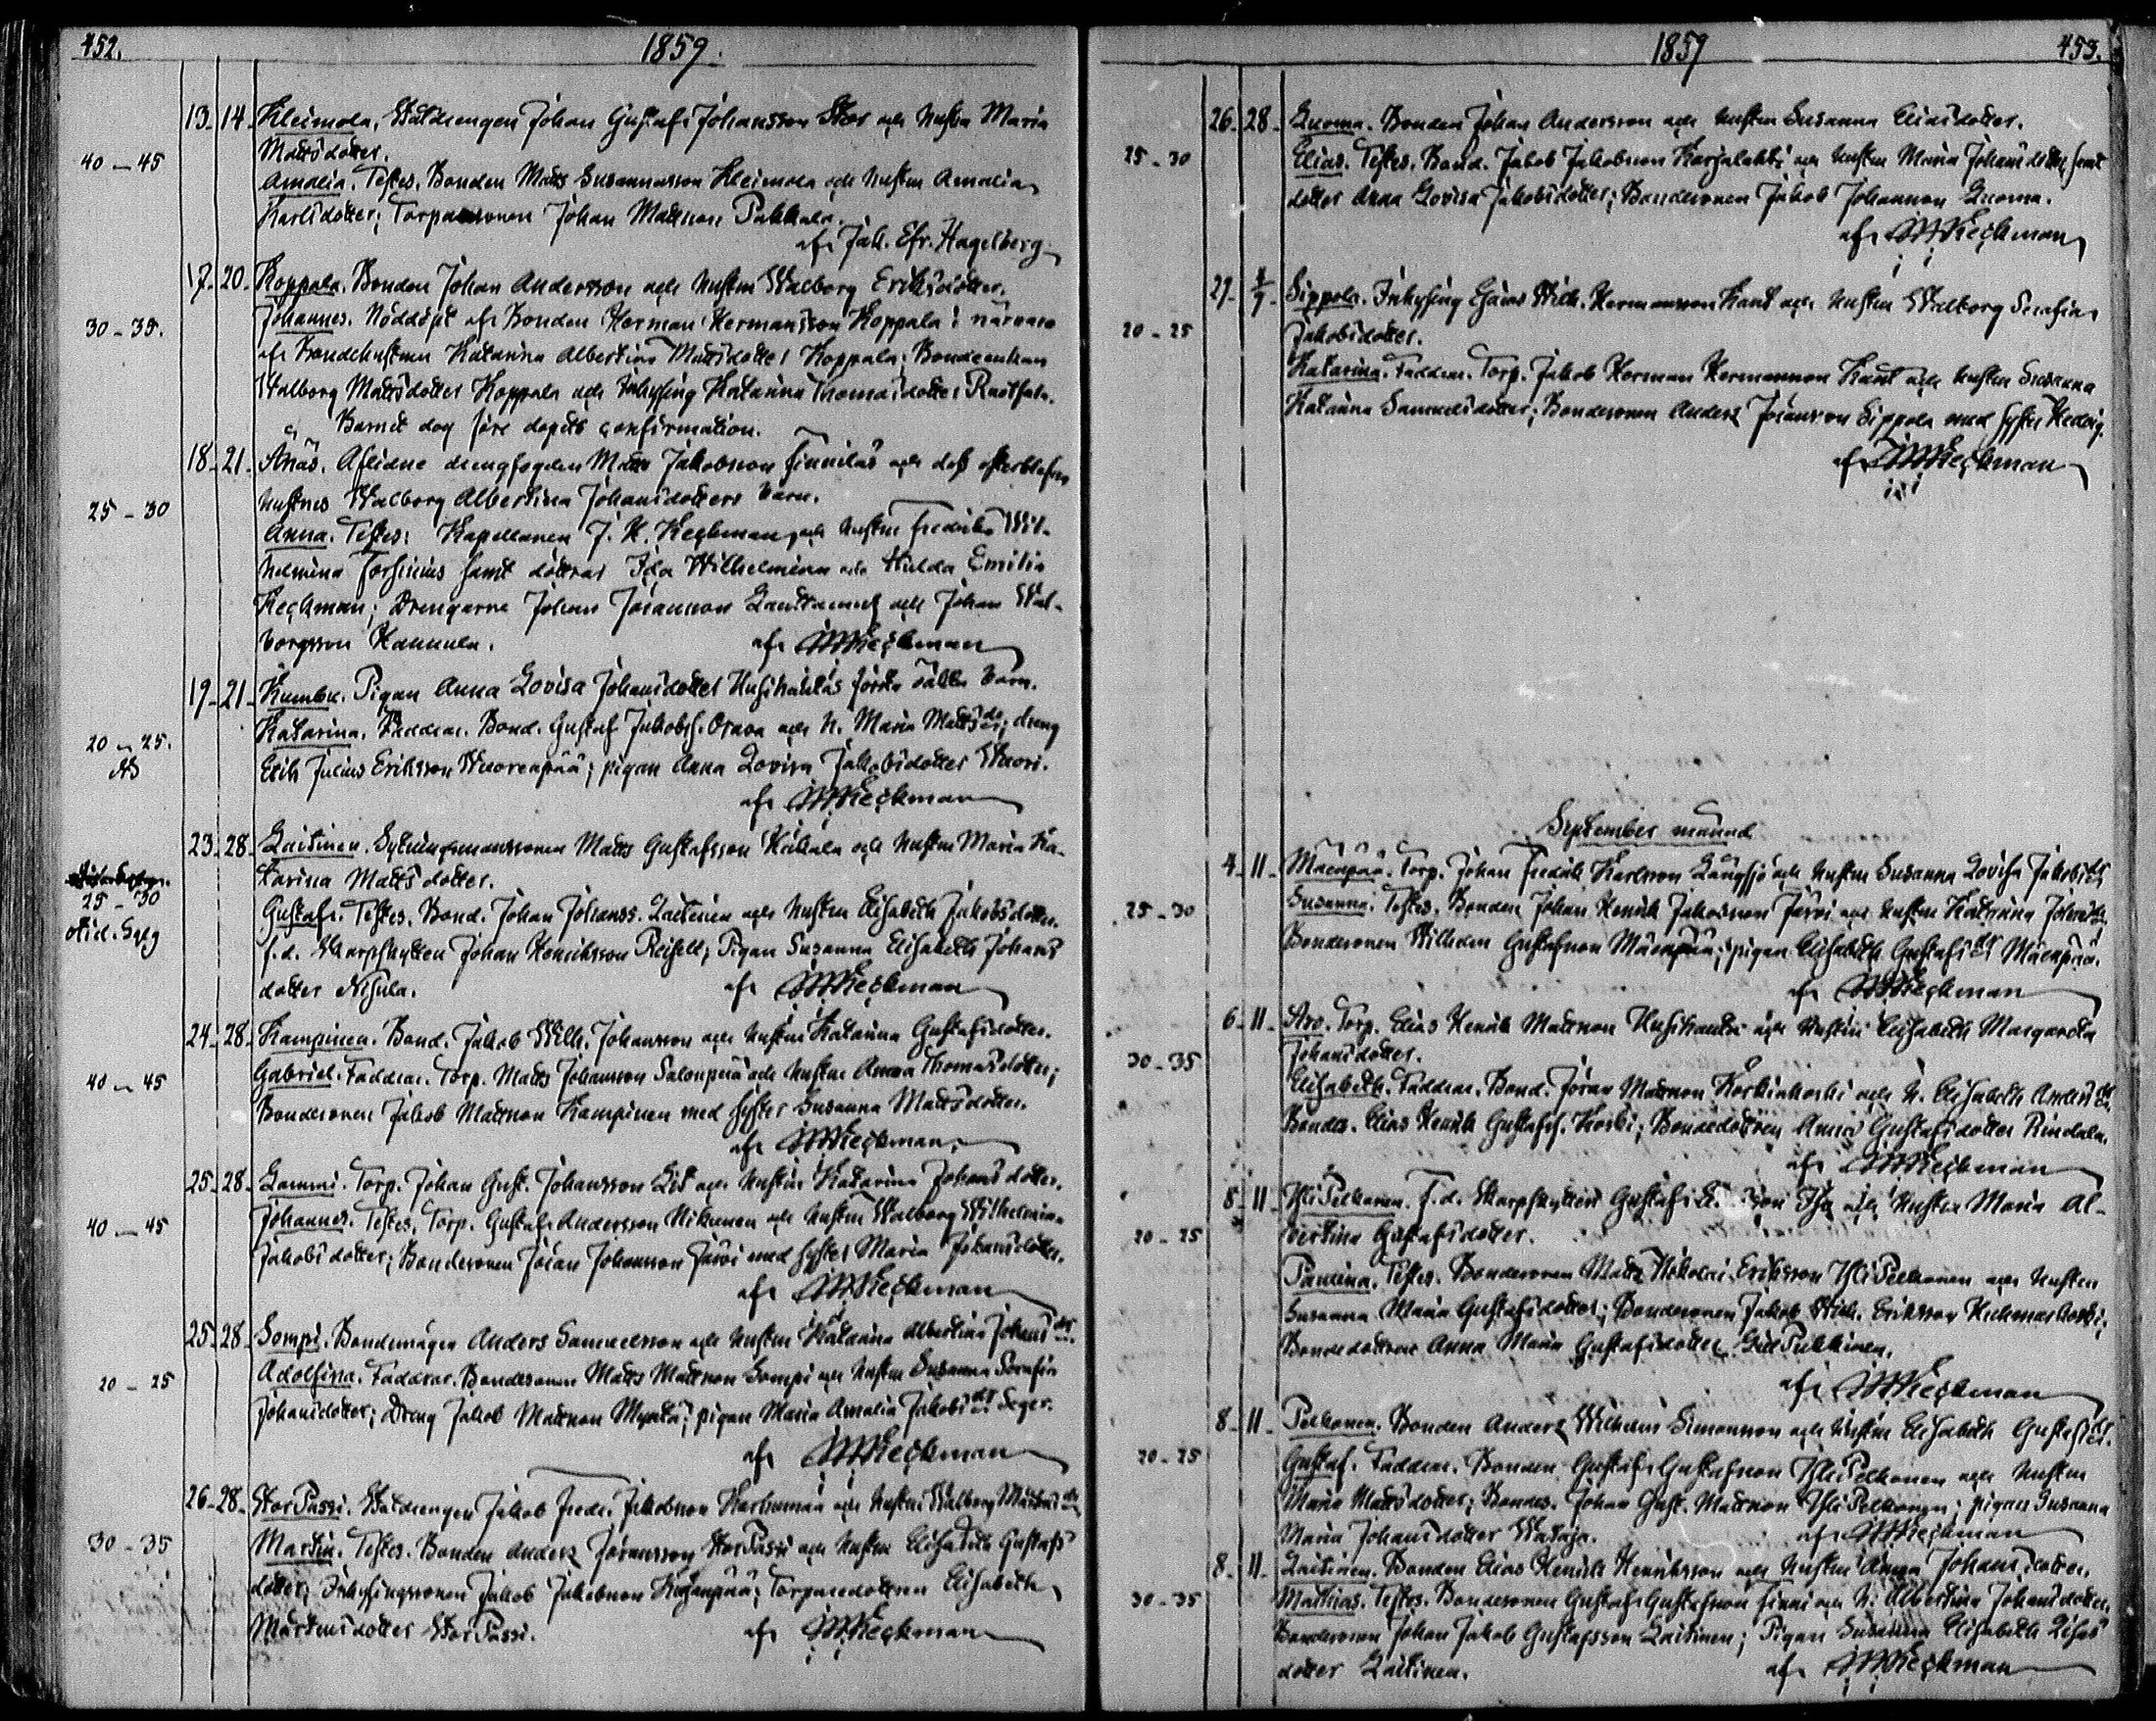 452.
1859.
13. 14. Kleimola, Statdrengen Johan Gustaf Johansson Stor och hustru Maria
Mattsdotter.
40 - 45
Amalia. Testes. Bonden Matts Susannasson Kleimola och hustrun Amalia
Karlsdotter; Torparesonen Johan Mattsson Pukkala.
af Joh. Efr. Hagelberg.
17. 20. Koppala. Bonden Johan Andersson och hustrun Walborg Eriksdotter.
30 - 35.
Johannes. Nöddöpt af Bonden Herman Hermansson Koppala i närvaro
af Bondehustrun Katarina Albertina Mattsdotter Koppala; Bondeenkan
Walborg Mattsdotter Koppala och Inhysing Katarina Thomasdotter
Barnet dog före dopets confirmation.
18. 21. Anäs. Aflidne drengfogden Matts Jakobsson Finnilas och dess efterlefvande
hustrus Walborg Albertina Johansdotters barn.
25 - 30
Anna. Testes: Kapellanen J. H. Keckman och hustrun Fredrika Wil-
helmina Forsinius samt döttrar Ida Wilhelmina och Hulda Emilia
Keckman; Drengarne Johan Johansson och Johan Wal-
borgsson Hannula. af JHKeckman
19. 21. Kumbu. Pigan Anna Lovisa Johansdotter Husikantas första oäkta barn.
Katarina. Faddrar. Bond. Gustaf Jakobss. Orava och h. Maria Mattsdr; dreng
20 - 25.
Erik Julius Eriksson Wuorenpää; pigan Anna Lovisa Jakobsdotter Wuori.
af JHKeckman
23. 28. Laitinen. Sytningsmanssonen Matts Gustafsson Kukala och hustrun Maria Ka-
tarina Mattsdotter.
25 - 30
Gustaf. Testes. Bond. Johan Johanss. Laitinen och hustrun Elisabeth Jakobsdotter,
f.d. Skarpskytten Johan Henriksson; Pigan Susanna Elisabeth Johans
dotter Nisula. af JHKeckman
24. 28. Kampinen. Bond. Jakob Wilh. Johansson och hustrun Katarina Gustafsdotter.
40 - 45
Gabriel. Faddrar. Torp. Matts Johansson Salonpää och hustrun Anna Thomasdotter;
Bondesonen Jakob Mattsson Kampinen med syster Susanna Mattsdotter.
af JHKeckman
25. 28. Lammi. Torp. Johan Gust. Johansson och hustrun Katarina Johansdotter.
40 - 45
Johannes. Testes. Torp. Gustaf Andersson Nikunen och hustrun Walborg Wilhelmina
Jakobsdotter; Bondesonen Johan Johansson Järvi med syster Maria Johansdotter.
af JHKeckman
25. 28. Sompi. Bondemågen Anders Samuelsson och hustrun Katarina Albertina Johansdr.
20 - 25
Adolfina. Faddrar. Bondesonen Matts Mattsson Sompi och hustrun Susanna Serafia
Johansdotter; Dreng Jakob Mattsson; pigan Maria Amalia Jakobsdr Seger.
af JHKeckman
26. 28. StorPassi. Statdrengen Jakob Fredr. Jakobsson Karhumaa och hustrun Walborg
30 - 35
Martin. Testes. Bonden Anders Göransson StorPassi och hustrun Elisabeth Gustafs
dotter; Inhysingssonen Jakob Jakobsson; Torparedottren Elisabeth
Mårtensdotter StorPassi. af JHKeckman
1859
453.
26. 28. Luoma. Bonden Johan Andersson och hustrun Susanna Eliasdotter.
25 - 30
Elias. Testes. Bond. Jakob Jakobsson Karjalahti och hustrun Maria Johansdotter samt
dotter Anna Lovisa Jakobsdotter; Bondesonen Jakob Johansson Luoma.
af JHKeckman
29. 4/9. Sippola. Inhysing Esaias Wilh. Hermansson Kant och hustrun Walborg Serafia
20 - 25
Jakobsdotter.
Katarina. Faddrar. Torp. Jakob Herman Hermansson Kant och hustrun Susanna
Katarina Samuelsdotter; Bondesonen Anders Johansson Sippola med syster Hedvig.
af JHKeckman
September månad
4. 11. Mäenpää. Torp. Johan Fredrik Karlsson Långsjö och hustrun Susanna Lovisa Jakobsdr
25 - 30
Susanna. Testes. Bonden Johan Henrik Jakobsson Järvi och hustrun Katarina
Bondesonen Wilhelm Gustafsson Mäenpää; pigan Elisabeth Gustafsdr Mäenpää.
af JHKeckman
6. 11. Aro. Torp. Elias Henrik Mattsson Husikanta och hustrun Elisabeth Margareta
30 - 35
Johansdotter.
Elisabeth. Faddrar. Bond. Göran Mattsson Koskinkorki och h. Elisabeth Andersdr
Bondes. Elias Henrik Gustafss. Koski; Bondedottren Anna Gustafsdotter Rindala.
af JHKeckman
8. 11. YliPelkonen. F.d. Skarpskytten Gustaf och hustrun Maria Al-
20 - 25
bertina Gustafsdotter.
Paulina. Testes. Bondesonen Matts Nikolai Eriksson YliPelkonen och hustrun
Susanna Maria Gustafsdotter; Bondesonen Jakob Wilh. Eriksson
Bondedottren Anna Maria Gustafsdotter
af JHKeckman
8. 11. Pelkonen. Bonden Anders Wilhelm Simonsson och hustrun Elisabeth Gustafsdr.
20 - 25
Gustaf. Faddrar. Bonden Gustaf Gustafsson YliPelkonen och hustrun
Maria Mattsdotter; Bondes. Johan Gust. Mattsson YliPelkonen; pigan Susanna
Maria Johansdotter Wataja. af JHKeckman
8. 11. Laitinen. Bonden Elias Henrik Henriksson och hustrun Anna Johansdotter.
30 - 35
Matthias. Testes. Bondesonen Gustaf Gustafsson Finni och h. Albertina Johansdotter,
Bondesonen Johan Jakob Gustafsson Laitinen; Pigan Susanna Elisabeth
dotter Laitinen. af JHKeckman